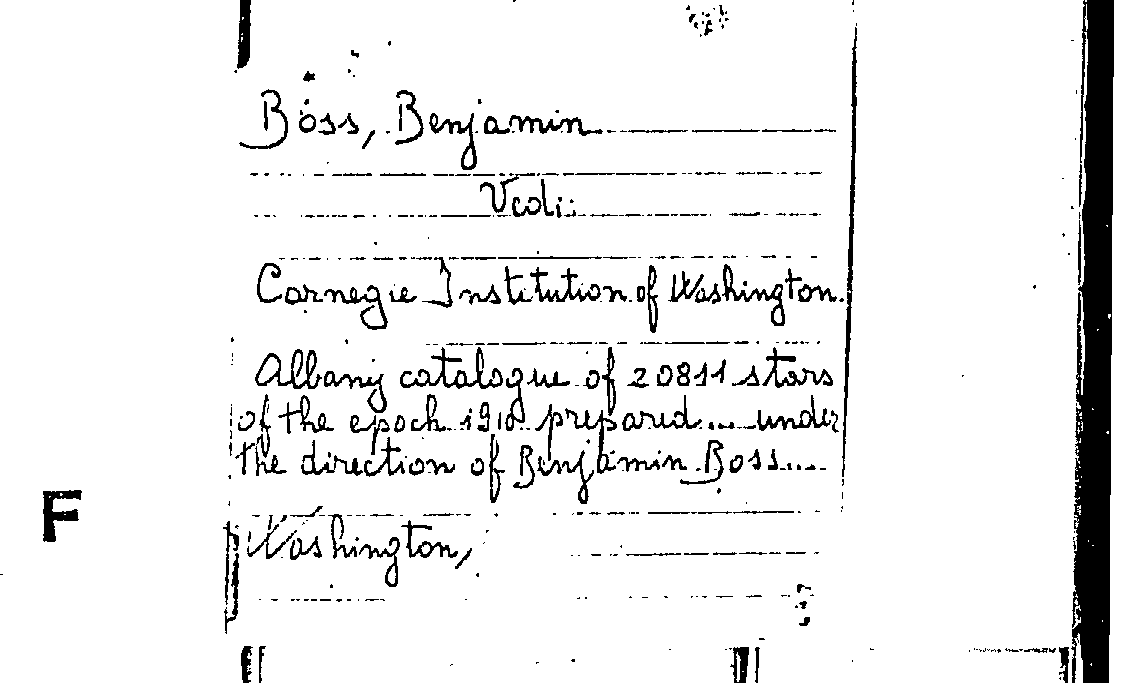 Boss, Benjamin
Vedi:
Carnegie Institution of Washington.
Albany catalogue of 20811 stars
of the epoch 1910 prepared.... under
the direction of Benjamin Boss.....
F
Washington,